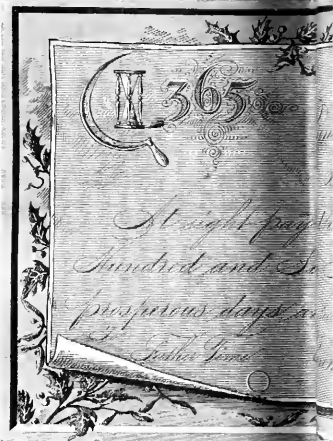 365
At sight pay
Hundred and
prosperous days
Father Time